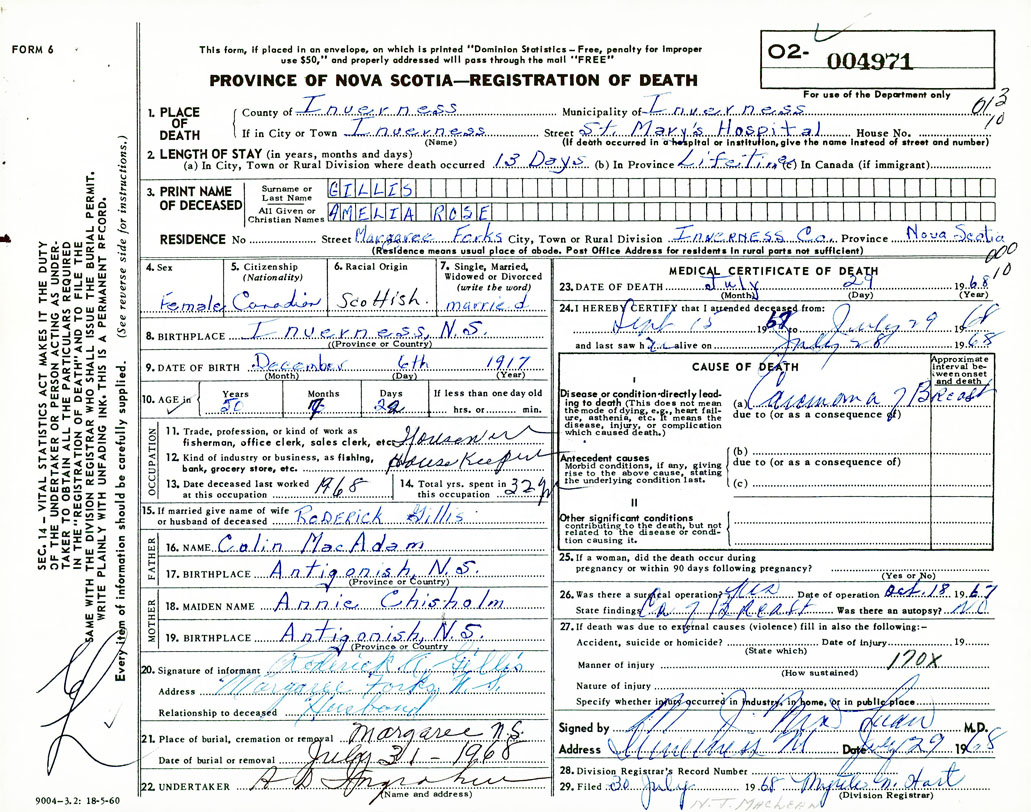 FORM 6
This form, if placed in an envelope, on which is printed "Dominion Statistics – Free, penalty for improper
use $50," and properly addressed will pass through the mail "FREE"
PROVINCE OF NOVA SCOTIA—REGISTRATION OF DEATH
O2- 004971
For use of the Department only
013
10
1. PLACE OF DEATH
County of Inverness Municipality of Inverness
If in City or Town Inverness Street St. Mary's Hospital House No.
(Name) (If death occurred in a hospital or institution, give the name instead of street and number)
2. LENGTH OF STAY (in years, months and days)
(a) In City, Town or Rural Division where death occurred 13 Days (b) In Province Lifetime (c) In Canada (if immigrant)
3. PRINT NAME OF DECEASED
Surname or Last Name GILLIS
All Given or Christian Names AMELIA ROSE
RESIDENCE No Street Margaree Forks City, Town or Rural Division Inverness Co. Province Nova Scotia
(Residence means usual place of abode. Post Office Address for residents in rural parts not sufficient)
000
10
4. Sex Female
5. Citizenship (Nationality) Canadian
6. Racial Origin Scottish.
7. Single, Married, Widowed or Divorced (write the word) married
8. BIRTHPLACE Inverness, N.S.
(Province or Country)
9. DATE OF BIRTH December 6th 1917
(Month) (Day) (Year)
10. AGE in Years Months Days If less than one day old
50 7 22 hrs. or min.
OCCUPATION
11. Trade, profession, or kind of work as
fisherman, office clerk, sales clerk, etc. Housewife
12. Kind of industry or business, as fishing,
bank, grocery store, etc. House Keeper
13. Date deceased last worked at this occupation 1968
14. Total yrs. spent in this occupation 32 yr
15. If married give name of wife
or husband of deceased RODERICK Gillis
FATHER
16. NAME Colin MacAdam
17. BIRTHPLACE Antigonish, N.S.
(Province or Country)
MOTHER
18. MAIDEN NAME Annie Chisholm
19. BIRTHPLACE Antigonish, N.S.
(Province or Country
20. Signature of informant Roderick A. Gillis
Address Margaree Forks, N.S.
Relationship to deceased Husband
21. Place of burial, cremation or removal Margaree N.S.
Date of burial or removal July 31 - 1968
22. UNDERTAKER
(Name and address)
MEDICAL CERTIFICATE OF DEATH
23. DATE OF DEATH July 29 1968
(Month) (Day) (Year)
24. I HEREBY CERTIFY that I attended deceased from:
Sept 15 1967 to July 29 1968
and last saw her alive on July 28 1968
CAUSE OF DEATH
Approximate interval be-tween onset and death
I
Disease or condition directly lead-
ing to death (This does not mean
the mode of dying, e.g., heart fail-
ure, asthenia, etc. It means the
disease, injury, or complication
which caused death.)
(a) Carcinoma of Breast
due to (or as a consequence of)
Antecedent causes
Morbid conditions, if any, giving
rise to the above cause, stating
the underlying condition last.
(b)
due to (or as a consequence of)
(c)
II
Other significant conditions
contributing to the death, but not
related to the disease or condi-
tion causing it.
25. If a woman, did the death occur during
pregnancy or within 90 days following pregnancy?
(Yes or No)
26. Was there a surgical operation? Yes Date of operation Oct. 18 1967
State findings Ca of Breast Was there an autopsy? NO
27. If death was due to external causes (violence) fill in also the following:–
Accident, suicide or homicide? Date of injury 19
(State which)
170X
Manner of injury
(How sustained)
Nature of injury
Specify whether injury occurred in industry, in home, or in public place
Signed by M.D.
Address Inverness Date July 29 1968
28. Division Registrar's Record Number
29. Filed 30 July 1968 Myrtle M. Hart
(Division Registrar)
N.J. MacLean
SEC. 14 – VITAL STATISTICS ACT MAKES IT THE DUTY
OF THE UNDERTAKER OR PERSON ACTING AS UNDER-
TAKER TO OBTAIN ALL THE PARTICULARS REQUIRED
IN THE "REGISTRATION OF DEATH" AND TO FILE THE
SAME WITH THE DIVISION REGISTRAR WHO SHALL ISSUE THE BURIAL PERMIT.
WRITE PLAINLY WITH UNFADING INK. THIS IS A PERMANENT RECORD.
Every item of information should be carefully supplied. (See reverse side for instructions.)
9004-3.2: 18-5-60